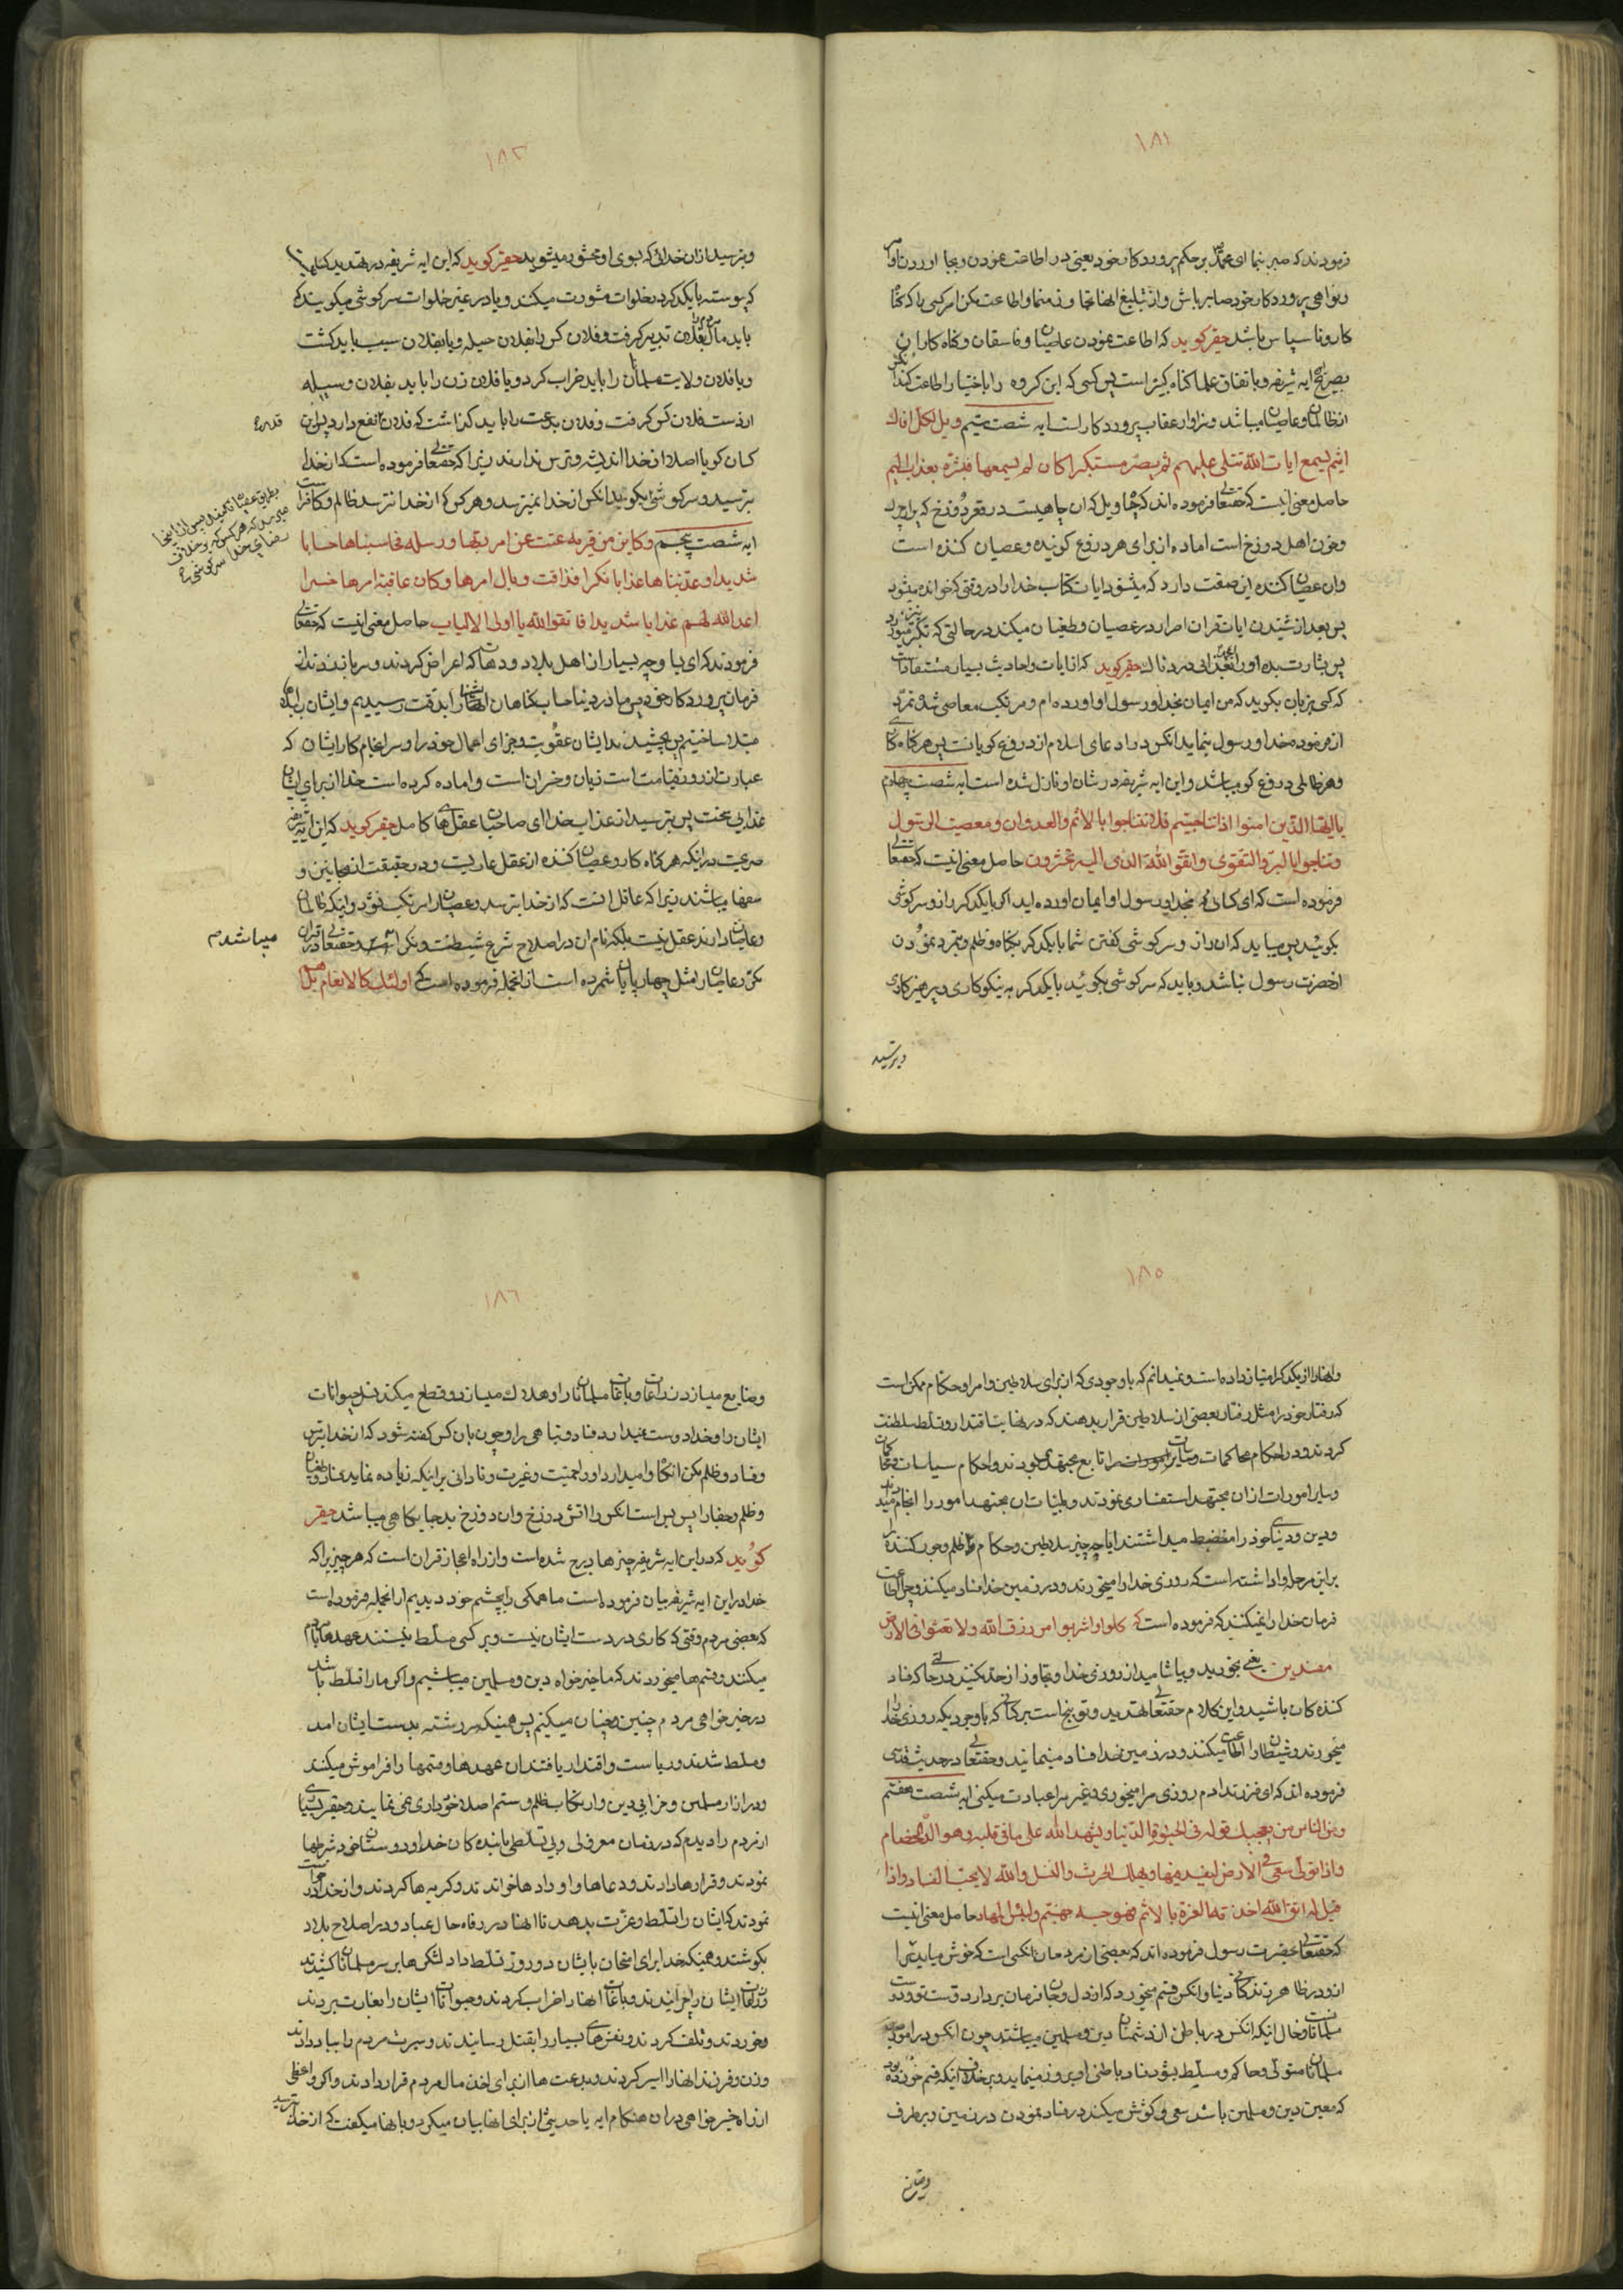 ١٨١
فرمودند که صبر بنما ای محمد بر حکم پروردکار خود یعنی در اطاعت نمودن و بجا اوردن اوامر
و نواهی پروردکار خود صابر باش و از تبلیغ انها تجاوز منما و اطاعت مکن امر کسی را که کناه
کار و نا سپاس باشد حقیر کوید که اطاعت نمودن عاصیان و فاسقان و کناه کاران
بصریح ایه شریفه و باتفاق علما کناه کبیر است پس کسی که این کروه را باختیار اطاعت کند انکس
از ظالمان و عاصیان میباشد و سزاوار عقاب پروردکار است ایه شصت سیم ویل لکل افاک
اثیم یسمع ایات الله تتلی علیهم ثم یصر مستکبرا کان لم یسمعها فبشره بعذاب الیم
حاصل معنی اینست که حقتعالی فرموده اند که چاه ویل که ان چاهیست در قعر دوزخ که پر از چرک
و خون اهل دوزخ است اماده از برای هر دروغ کوینده و عصیان کننده است
وان عصیان کننده این صفت دارد که میشنود ایات کتاب خدا را در وقتی که خوانده میشود
پس بعد از شنیدن ایات قران اصرار در عصیان و طغیان میکند در حالتی که تکبر میورزد
پس بشارت بده او را بعذابی دردناک حقیر کوید که از ایات و احادیث بسیار مستفاد است
که کسی بزبان بکوید که من ایمان بخدا و رسول او اورده ام و مرتکب معاصی شود و تمرد
از فرموده خدا و رسول بنماید انکس در ادعای اسلام از دروغ کویانست پس هر کناه کاری
و هر ظالمی دروغ کو میباشد و این ایه شریفه در شان او نازل شده است ایه شصت چهارم
یا ایها الذین امنوا اذا تناجیتم فلا تتناجوا بالاثم والعدوان و معصیت الرسول
و تناجوا بالبر والتقوی واتقوا الله الذی الیه تحشرون حاصل معنی اینست که حقتعالی
فرموده است که ای کسانی که بخدا و رسول او ایمان اورده اید اکر با یکدکر راز و سر کوشی
بکوئید پس میباید که ان راز و سر کوشی کفتن شما با یکدکر بکناه و ظلم و تمرد نمودن
از حضرت رسول نباشد و باید که سر کوشی بکوئید با یکدکر به نیکوکاری و پرهیزکاری
و بترسید
١٨٢
و بترسید از ان خدائی که بسوی او محشور میشوید حقیر کوید که این ایه شریفه در تهدید کسانیست
که پیوسته با یکدکر در خلوات مشورت میکنند و یا در غیر خلوات سر کوشی میکویند که
باید مال فلان مرد را بفلان تدبیر کرفت و فلان کس را بفلان حیله و یا بفلان سبب باید کشت
و یا فلان ولایت مسلمانان را باید خراب کرد و یا فلان زن را باید بفلان وسیله
از دست فلان کس کرفت و فلان بدعت را باید کذاشت که فلان قدر نفع دارد پس ان
کسان کویا اصلا از خدا اندیشه و ترس ندارند زیرا که حقتعالی فرموده است که از خدا
بترسید و سر کوشی بد مکوئید انکس از خدا نمیترسد و هر کس که از خدا نترسد ظالم و کافر است
ایه شصت پنجم و کاین من قریه عتت عن امر ربها و رسله فحاسبناها حسابا
شدیدا و عذبناها عذابا نکرا فذاقت وبال امرها و کان عاقبة امرها خسرا
اعد الله لهم عذابا شدیدا فاتقوا الله یا اولی الالباب حاصل معنی اینست که حقتعالی
فرمودند که ای بسا و چه بسیار از اهل بلاد و دهات که اعراض کردند و سر باز زدند از
فرمان پروردکار خود پس ما در دنیا حساب کناهان ایشانرا بدقت رسیدیم و ایشان را ببلاها
مبتلا ساختیم پس چشیدند ایشان عقوبت و جزای اعمال خود را و سر انجام کار ایشان که
عبارت از روز قیامت است زیان و خسران است و اماده کرده است خدا از برای ایشان
عذابی سخت پس بترسید از عذاب خدا ای صاحبان عقلهای کامل حقیر کوید که این ایه شریفه
صریحست در اینکه هر کناه کار و عصیان کننده از عقل عاریست و در حقیقت از مجانین و
سفها میباشند زیرا که عاقل انست که از خدا بترسد و عصیان را مرتکب نشود و اینکه ظالمان
و عاصیان دارند عقل نیست بلکه نام ان در اصلاح شرع شیطنت و نکرا است میباشد م و حقتعالی در قران
مکرر عاصیان را مثل چهار پایان شمرده است از انجمله فرموده است که اولئک کالانعام بل هم
قدر ع
١٨٥
و انها را از یکدکر امتیاز داده است و نمیدانم که با وجودی که از برای سلاطین و امرا و حکام ممکن است
که رفتار خود را مثل رفتار بعضی از سلاطین قرار بدهند که در نهایت اقتدار و تسلط سلطنت
کردند و در احکام محاکمات و سیاسات را تابع مجتهد بودند و احکام سیاسات و محاکمات
و سایر امورات از ان مجتهد استفسار می نمودند و بلینات ان مجتهد امور را انجام میدادند
و دین و دنیای خود را مضبط میداشتند ایا چه چیز سلاطین و حکام ظلم و جور کننده را
بر این مرحله واداشته است که روزی خدا را میخورند و در زمین خدا فساد میکنند و چرا اطاعت
فرمان خدا را نمیکنند که فرموده است که کلوا واشربوا من رزق الله ولا تعثوا فی الارض
مفسدین یعنی بخورید و بیاشامید از روزی خدا و تجاوز از حد مکنید در حالتی که فساد
کننده کان باشید و این کلام حقتعالی تهدید و توبیخ است بر کسانی که با وجودیکه روزی خدا را
میخورند و شیطان را اطاعت میکنند و در زمین خدا فساد مینمایند و حقتعالی در حدیث قدسی
فرموده اند که ای فرزند ادم روزی مرا میخوری و غیر مرا عبادت میکنی ایه شصت هفتم
و من الناس من یعجبک قوله فی الحیوة الدنیا و یشهد الله علی ما فی قلبه و هو الد الخصام
و اذا تولی سعی فی الارض لیفسد فیها و یهلک الحرث والنسل والله لا یحب الفساد و اذا
قیل له اتق الله اخذته العزة بالاثم فحسبه جهنم و لبئس المهاد حاصل معنی اینست
که حقتعالی بحضرت رسول فرموده اند که بعضی از مردمان کسی است که خوش میاید ترا
از و در ظاهر زندکانی دنیا و انکس قسم میخورد که از دل و جان فرمان بردار و دوست تو و دوست
مسلمانان است و حال اینکه انکس در باطن از دشمنان دین و مسلمین میباشد چون انکس در امور
مسلمانان متولی و حاکم و مسلط بشود فساد باطنی او بروز مینماید و بر خلاف اینکه قسم خورده بود
که معین دین و مسلمین باشد سعی و کوشش میکند در فساد نمودن در زمین و بر طرف
و ضایع
١٨٦
و ضایع میسازد زراعات و باغات مسلمانان را و هلاک میسازد و قطع میکند نسل حیوانات
ایشان را و خدا دوست نمیدارد فساد و تباهی را و چون بان کس کفته شود که از خدا بترس
و فساد و ظلم مکن انکاه وامیدارد او را حمیت و غیرت و نادانی بر اینکه زیاده نماید فساد و طغیان
و ظلم و جفا را پس بس است انکس را اتش دوزخ وان دوزخ بد جایکاهی میباشد حقیر
کوید که در این ایه شریفه چیزها درج شده است و از راه اعجاز قران است که هر چیز را که
خدا در این ایه شریفه بیان فرموده است ما همکی را بچشم خود دیدیم از انجمله فرموده است
که بعضی مردم وقتی که کاری در دست ایشان نیست و بر کسی مسلط نیستند عهدها با مردم
میکنند و قسم ها میخورند که ما خیر خواه دین و مسلمین میباشیم و اکر ما را تسلط باشد
در خیر خواهی مردم چنین و چنان میکنیم پس همینکه سر رشته بدست ایشان امد
و مسلط شدند و ریاست و اقتدار یافتند ان عهدها و قسمها را فراموش میکنند
و در ازار مسلمین و خرابی دین و ارتکاب ظلم و ستم اصلا خود داری نمی نمایند و حقیر بسیاری
از مردم را دیدم که در زمان معزولی و بی تسلطی با بنده کان خدا و دوستان خود شرطها
نمودند و قرارها دادند و دعاها و اورادها خواندند و کریه ها کردند و از خدا درخواست
نمودند که ایشان را تسلط و عزت بدهد تا انها در رفاه حال عباد و در اصلاح بلاد
بکوشند و همینکه خدا برای امتحان بایشان دو روز تسلط داد لشکرها بر سر مسلمانان کشیدند
و زراعات ایشان را چرانیدند و باغات انها را خراب کردند و حیوانات ایشان را بغارت بردند
و خوردند و تلف کردند و نفس های بسیار را بقتل رسانیدند و سیرت مردم را بباد دادند
و زن و فرزند انها را اسیر کردند و بدعت ها از برای اخذ مال مردم قرار دادند و اکر واعظی
از راه خیر خواهی در ان هنکام ایه یا حدیثی از برای انها بیان میکرد و بانها میکفت که از خدا بترسید